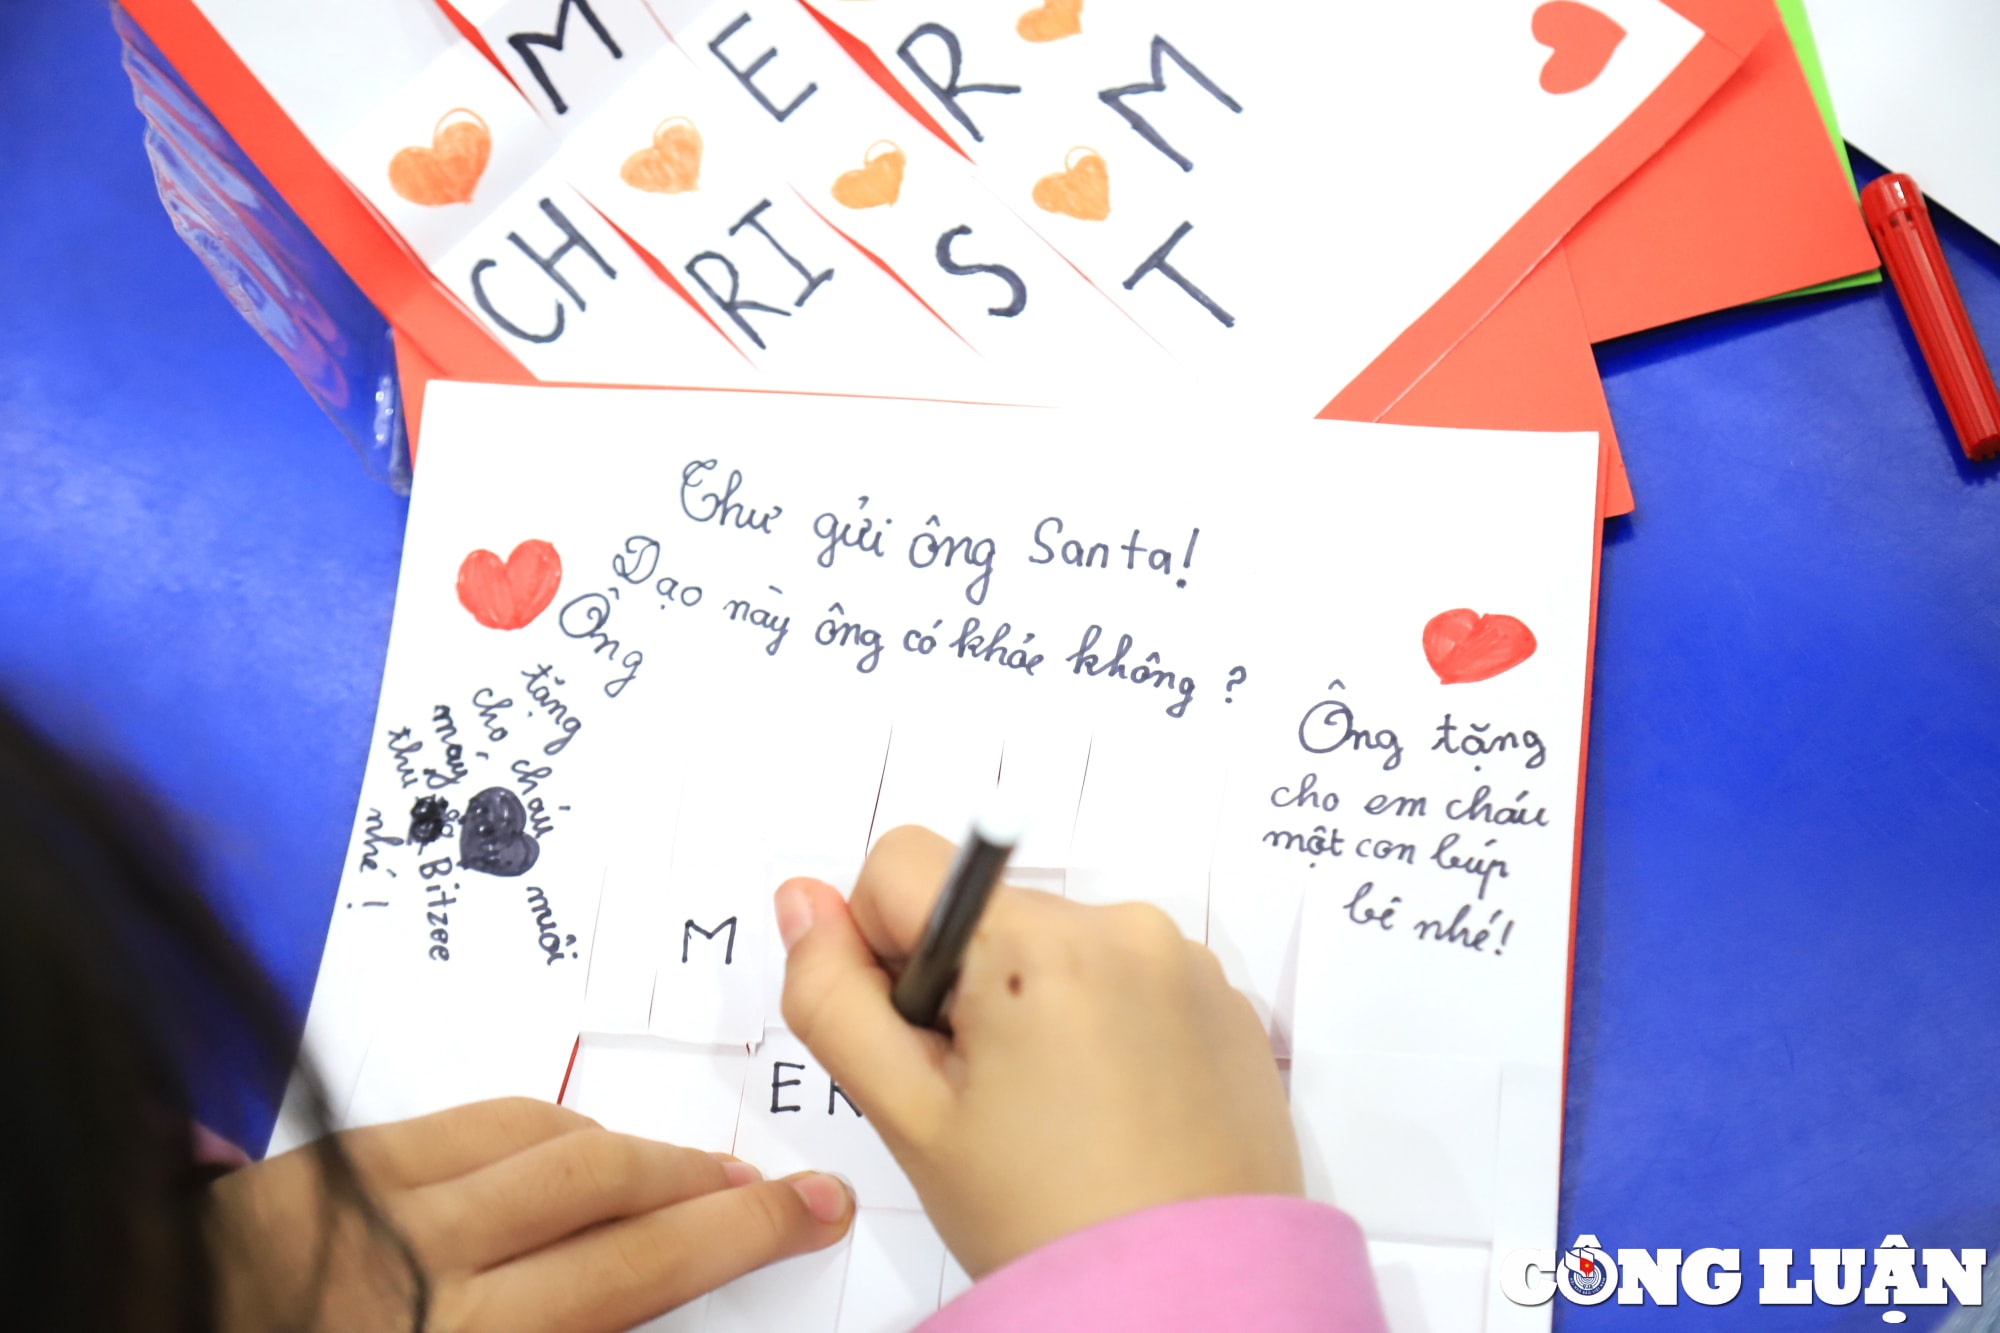 M E R M
CH RI S T
Thư gửi ông Santa!
Dạo này ông có khỏe không ?
Ông
tặng
cho cháu
máy
muôi
thu
Bitzee
nhé !
Ông tặng
cho em cháu
một con búp
bê nhé!
M
E R
CÔNG LUẬN